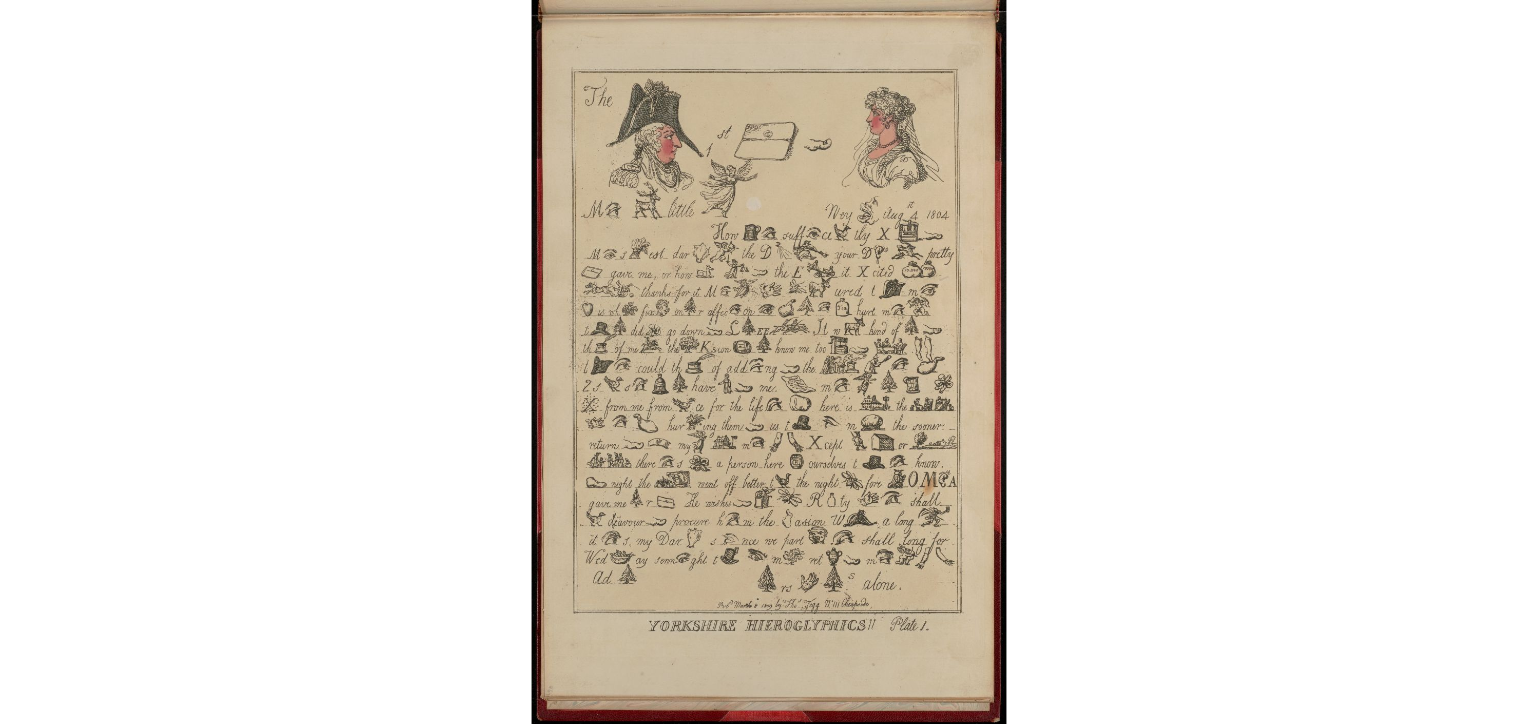 The
1 st
M little Wey Aug 4 1804
How suff ce tly X
M s est dar the D your D pretty
gave me, or how the E it X cited
thanks for it M ured t m
is of fix in r affec on hurt m
t did go down L It w kind of
th of me the K s ion know me too
t could th of add ng the
2 s s have me. m
from me from ce for the life here is the
hur ing them us t m the sooner
return my m X cept or
there s a person here ourselves t know.
night the ment off better t the night fore OM A
gave me r The wishes R ty shall
deavour procure h m the assion W a long
it s, my Dar s nce we part shall long for
Wed ay senn ght t m ret m
Ad rs s alone.
YORKSHIRE HIEROGLYPHICS!! Plate 1.